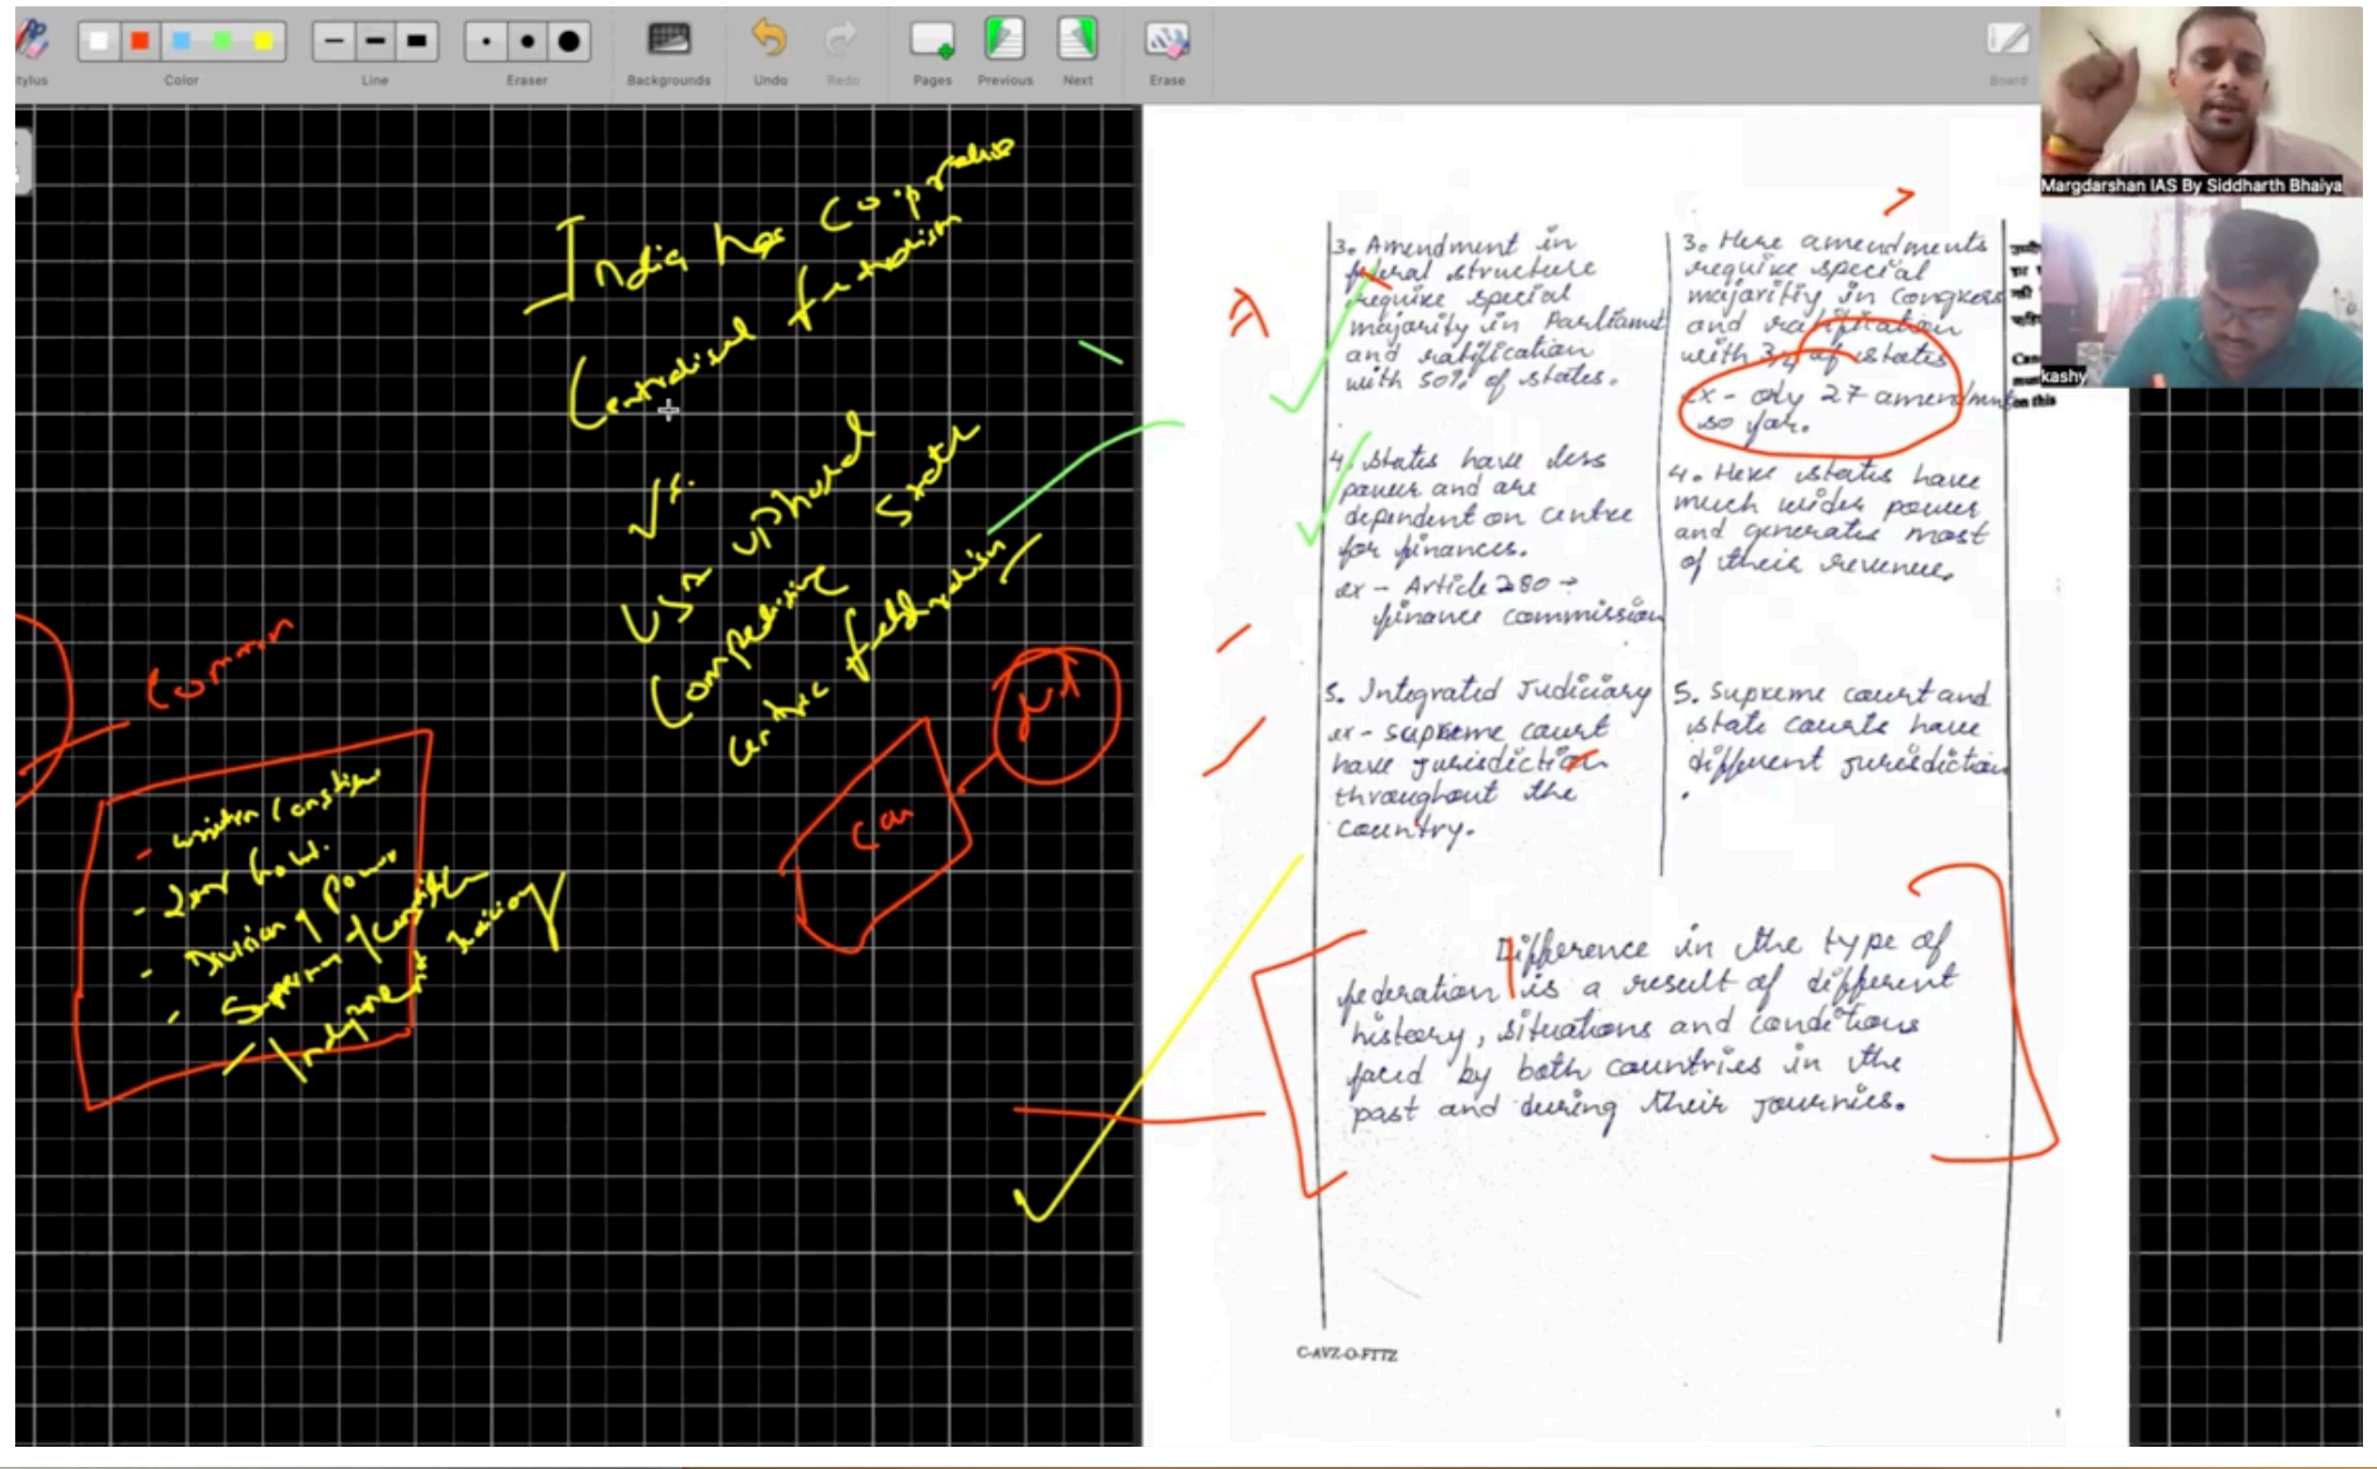 tylus
Color
Line
Eraser
Backgrounds
Undo
Redo
Pages
Previous
Next
Erase
Board
Margdarshan IAS By Siddharth Bhaiya
kashy
India has
Centralised
vs.
USA uphold
Competitive State
Common
- written
- Division of power
Can
3. Amendment in
federal structure
require special
majority in Parliament
and ratification
with 50% of states.
4. States have less
power and are
dependent on centre
for finances.
ex - Article 280 →
finance commission
5. Integrated Judiciary
ex - supreme court
have jurisdiction
throughout the
country.
3. Here amendments
require special
in Congress
and ratification
with 3/4 of states
ex - only 27 amendments
so far.
4. Here states have
much wider power
and generates most
of their revenue.
5. Supreme court and
state courts have
different jurisdiction
.
on this
Difference in the type of
federation is a result of different
history, situations and conditions
faced by both countries in the
past and during their journies.
C-AVZ-O-FTTZ